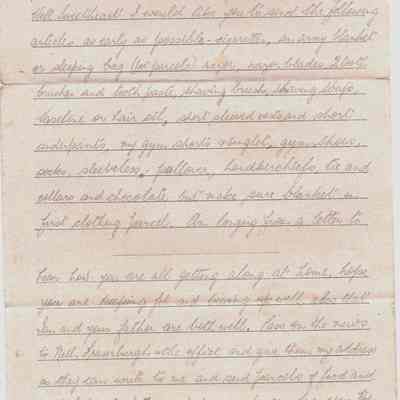 Well sweetheart I would like you to send the following
articles as early as possible - cigarettes, an army blanket
or sleeping bag (in parcels) razor, razor blades, tooth
brushes and tooth paste, shaving brush, shaving soap,
vaseline or hair oil, short sleeved vests and short
underpants, my gym shorts singlet, gym shoes,
socks, sleeveless pullover, handkerchiefs, tie and
collars and chocolate, but make sure blanket in
first clothing parcel. Am longing for a letter to
hear how you are all getting along at home, hope
you are keeping fit and bearing up well, also that
and your father are both well. Pass on the news
to Nell, office and give them my address
so they can write to me and send parcels of food and